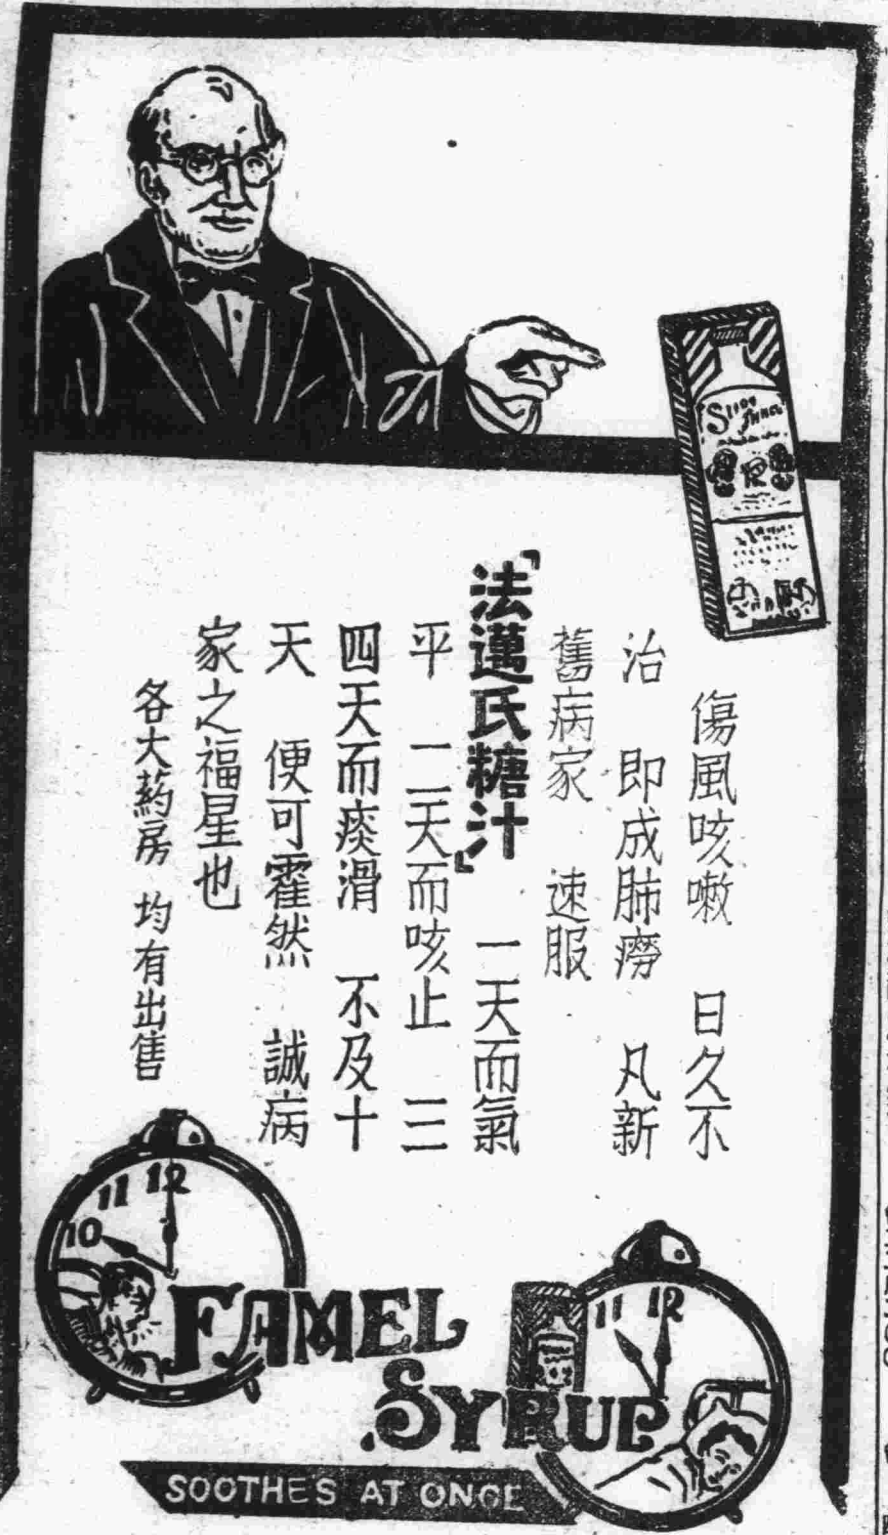 傷風咳嗽 日久不
治 即成肺癆 凡新
舊病家 速服
「法邁氏糖汁」 一天而氣
平 二天而咳止 三
四天而痰滑 不及十
天 便可霍然 誠病
家之福星也
各大葯房 均有出售
10 11 12
FAMEL
11 12
SYRUP
SOOTHES AT ONCE